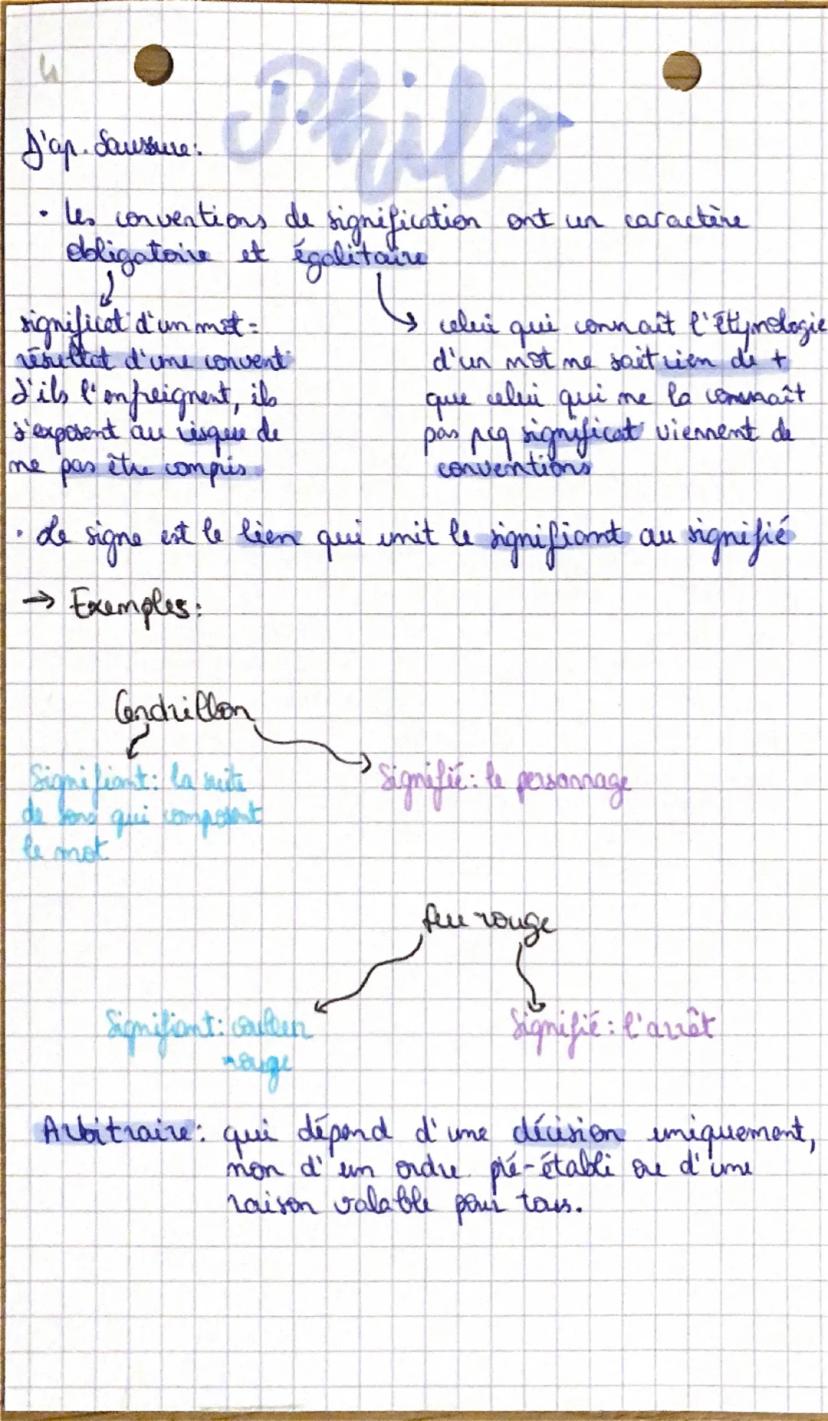 4
Philo
D'ap. Saussure:
• Les conventions de signification ont un caractère
obligatoire et égalitaire
significat° d'un mot =
résultat d'une convent°
S'ils l'enfreignent, ils
s'exposent au risque de
ne pas être compris
celui qui connaît l'Étymologie
d'un mot ne sait rien de +
que celui qui ne la connaît
pas pcq significat° viennent de
conventions
• Le signe est le lien qui unit le signifiant au signifié
→ Exemples:
Cendrillon
Signifiant: la suite
de sons qui composent
le mot
Signifié: le personnage
feu rouge
Signifiant: couleur
rouge
Signifié: l'arrêt
Arbitraire: qui dépend d'une décision uniquement,
non d'un ordre pré-établi ou d'une
raison valable pour tous.